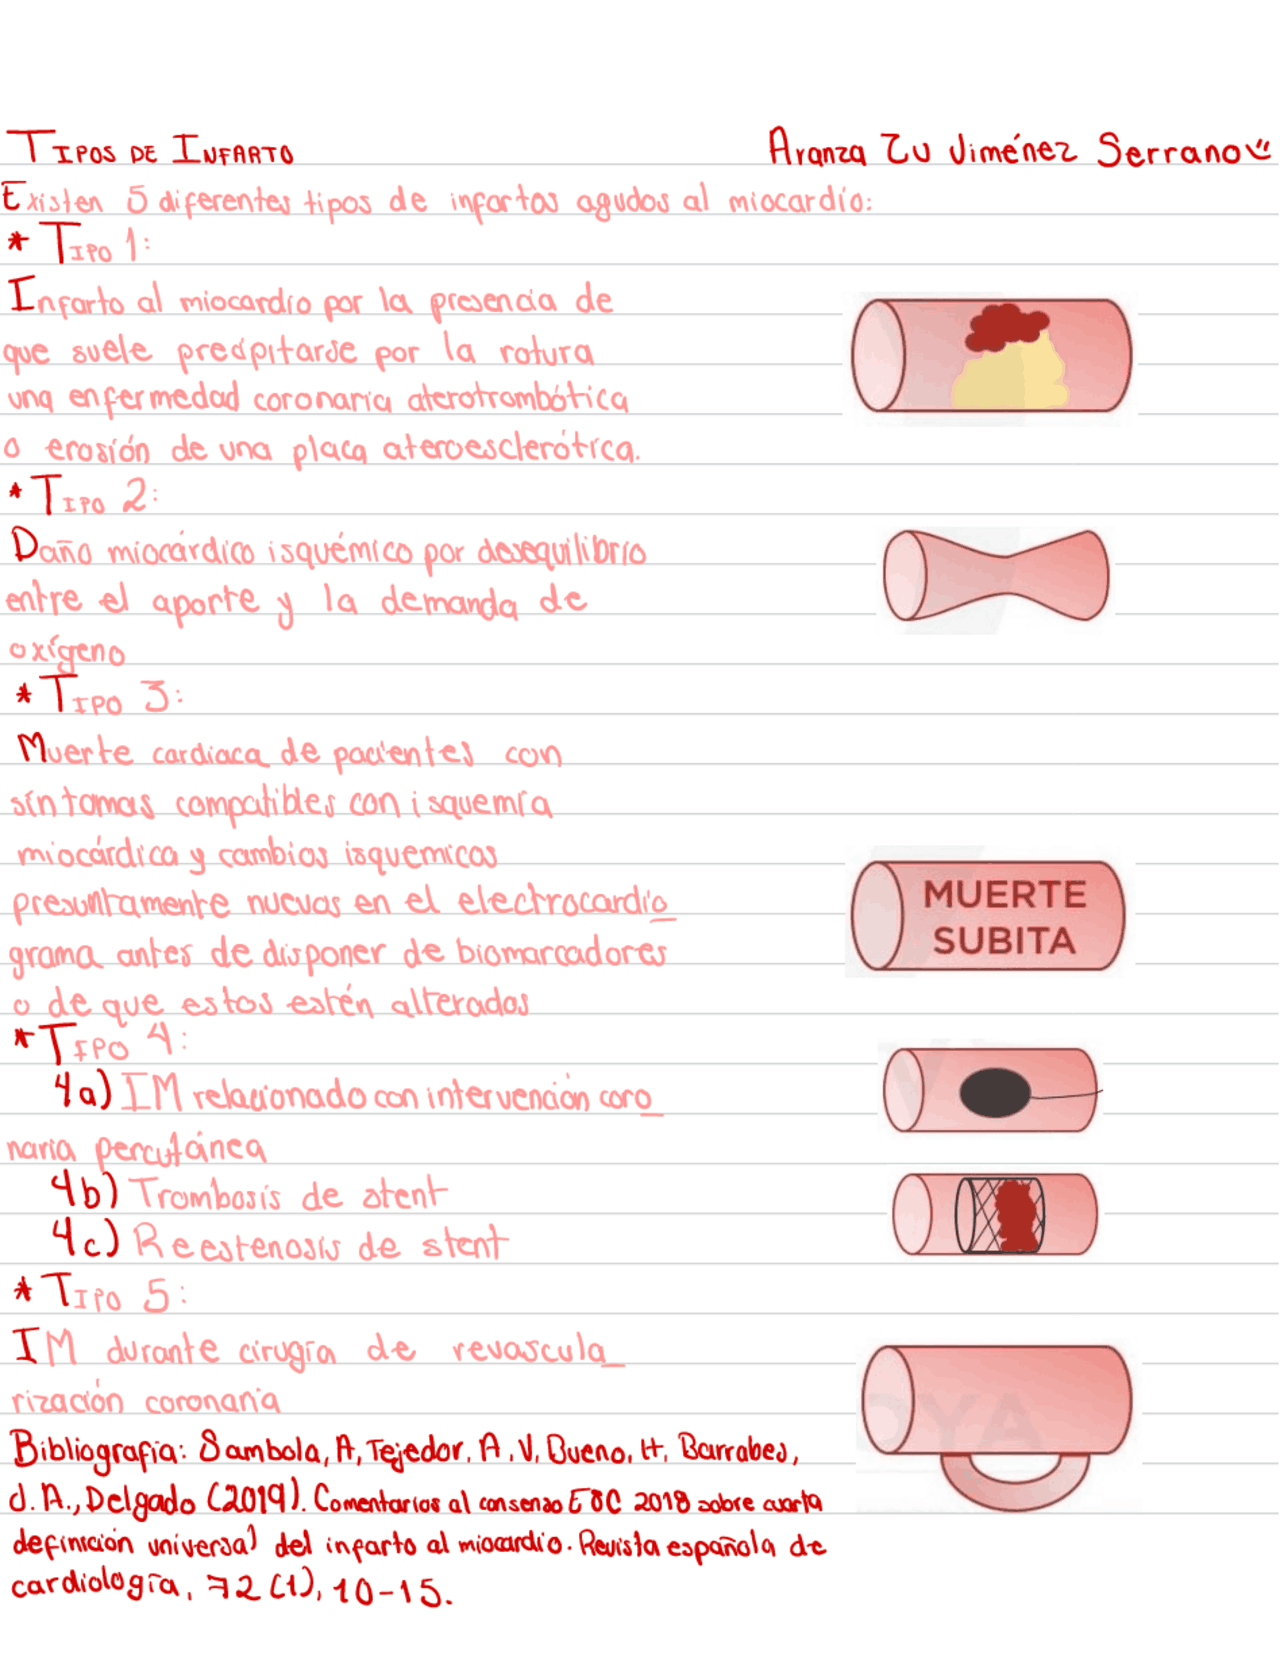 TIPOS DE INFARTO
Aranza Zu Jiménez Serrano
Existen 5 diferentes tipos de infartos agudos al miocardio:
* TIPO 1:
Infarto al miocardio por la presencia de
que suele precipitarse por la rotura
una enfermedad coronaria aterotrombótica
o erosión de una placa ateroesclerótica.
* TIPO 2:
Daño miocárdico isquémico por desequilibrio
entre el aporte y la demanda de
oxígeno
* TIPO 3:
Muerte cardiaca de pacientes con
síntomas compatibles con isquemia
miocárdica y cambios isquemicos
presuntamente nuevos en el electrocardio_
grama antes de disponer de biomarcadores
o de que estos estén alterados
MUERTE
SUBITA
* TIPO 4:
4a) IM relacionado con intervención coro_
naria percutánea
4b) Trombosis de stent
4c) Reestenosis de stent
* TIPO 5:
IM durante cirugía de revascula_
rización coronaria
Bibliografia: Sambola, A, Tejedor, A. V, Bueno, H, Barrabes,
J. A., Delgado (2019). Comentarios al consenso ESC 2018 sobre cuarta
definición universal del infarto al miocardio. Revista española de
cardiología, 72 (1), 10-15.